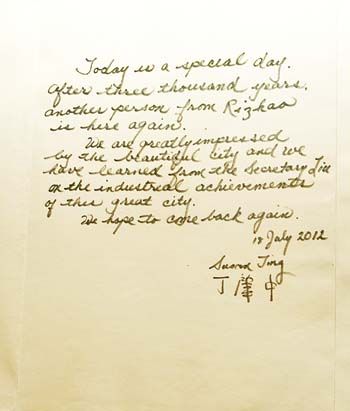 Today is a special day.
After three thousand years,
another person from Rizhao
is here again.
We are greatly impressed
by the beautiful city and we
have learned from the Secretary
on the industrial achievements
of this great city.
We hope to come back again.
18 July 2012
Samuel Ting
丁肇中